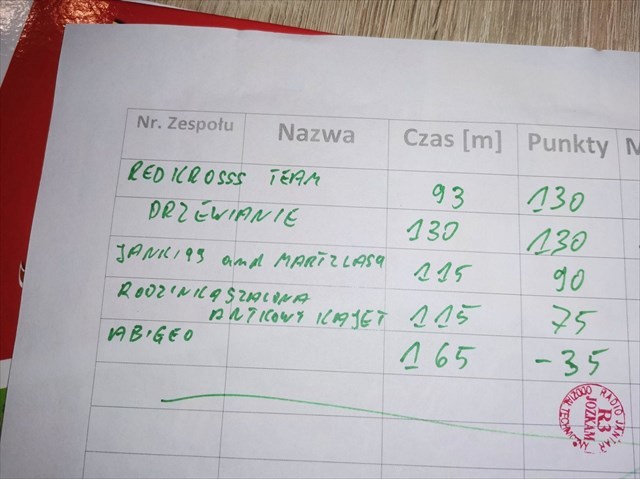 Nr. Zespołu Nazwa Czas [m] Punkty
REDKROSSS TEAM 93 130
DRZEWIANIE 130 130
JANKI99 and 115 90
RODZINKASZALONA
ANTKOWY KAJET 115 75
ABIGEO 165 -35
R3
JOZKAM